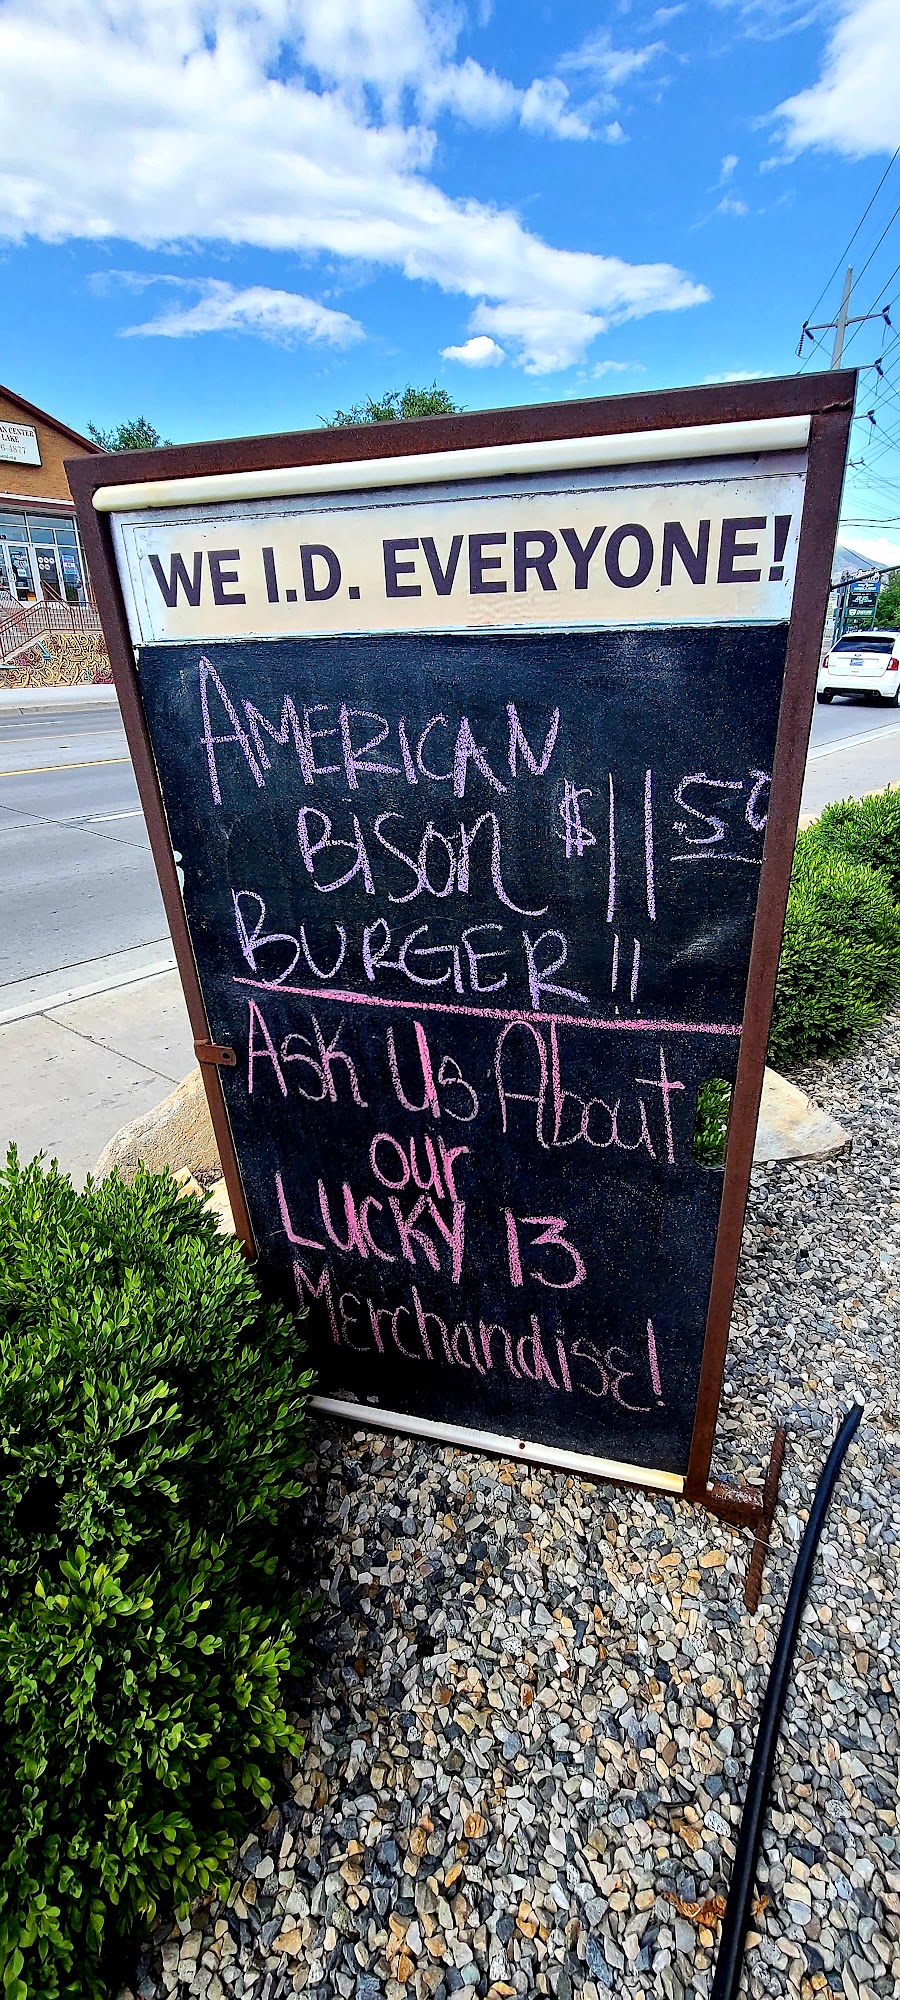 WE I.D. EVERYONE!
AMERICAN
BISON $11.50
BURGER!!
Ask Us About
our
LUCKY 13
Merchandise!
CENTER
LAKE